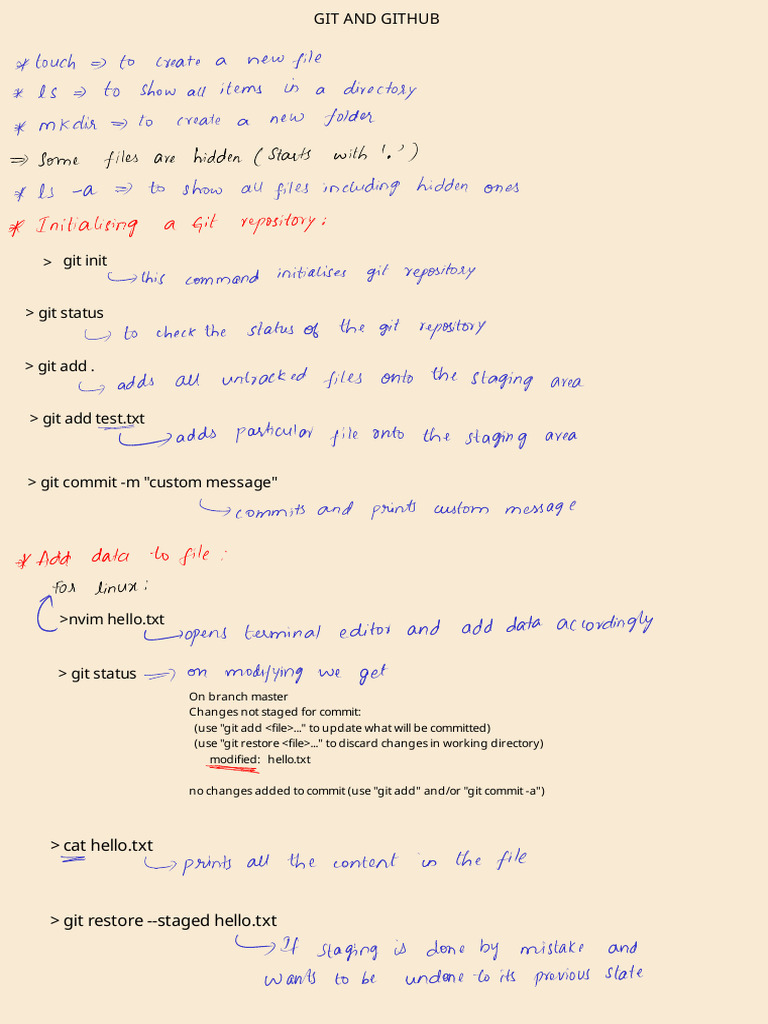 GIT AND GITHUB
* touch => to create a new file
* ls => to show all items in a directory
* mkdir => to create a new folder
=> Some files are hidden (Starts with '.')
* ls -a => to show all files including hidden ones
* Initialising a Git repository:
> git init
this command initialises git repository
> git status
to check the status of the git repository
> git add .
adds all untracked files onto the staging area
> git add test.txt
adds particular file onto the staging area
> git commit -m "custom message"
commits and prints custom message
* Add data to file:
For linux:
>nvim hello.txt
opens terminal editor and add data accordingly
> git status => on modifying we get
On branch master
Changes not staged for commit:
(use "git add <file>..." to update what will be committed)
(use "git restore <file>..." to discard changes in working directory)
modified: hello.txt
no changes added to commit (use "git add" and/or "git commit -a")
> cat hello.txt
prints all the content in the file
> git restore --staged hello.txt
If staging is done by mistake and
wants to be undone to its previous state